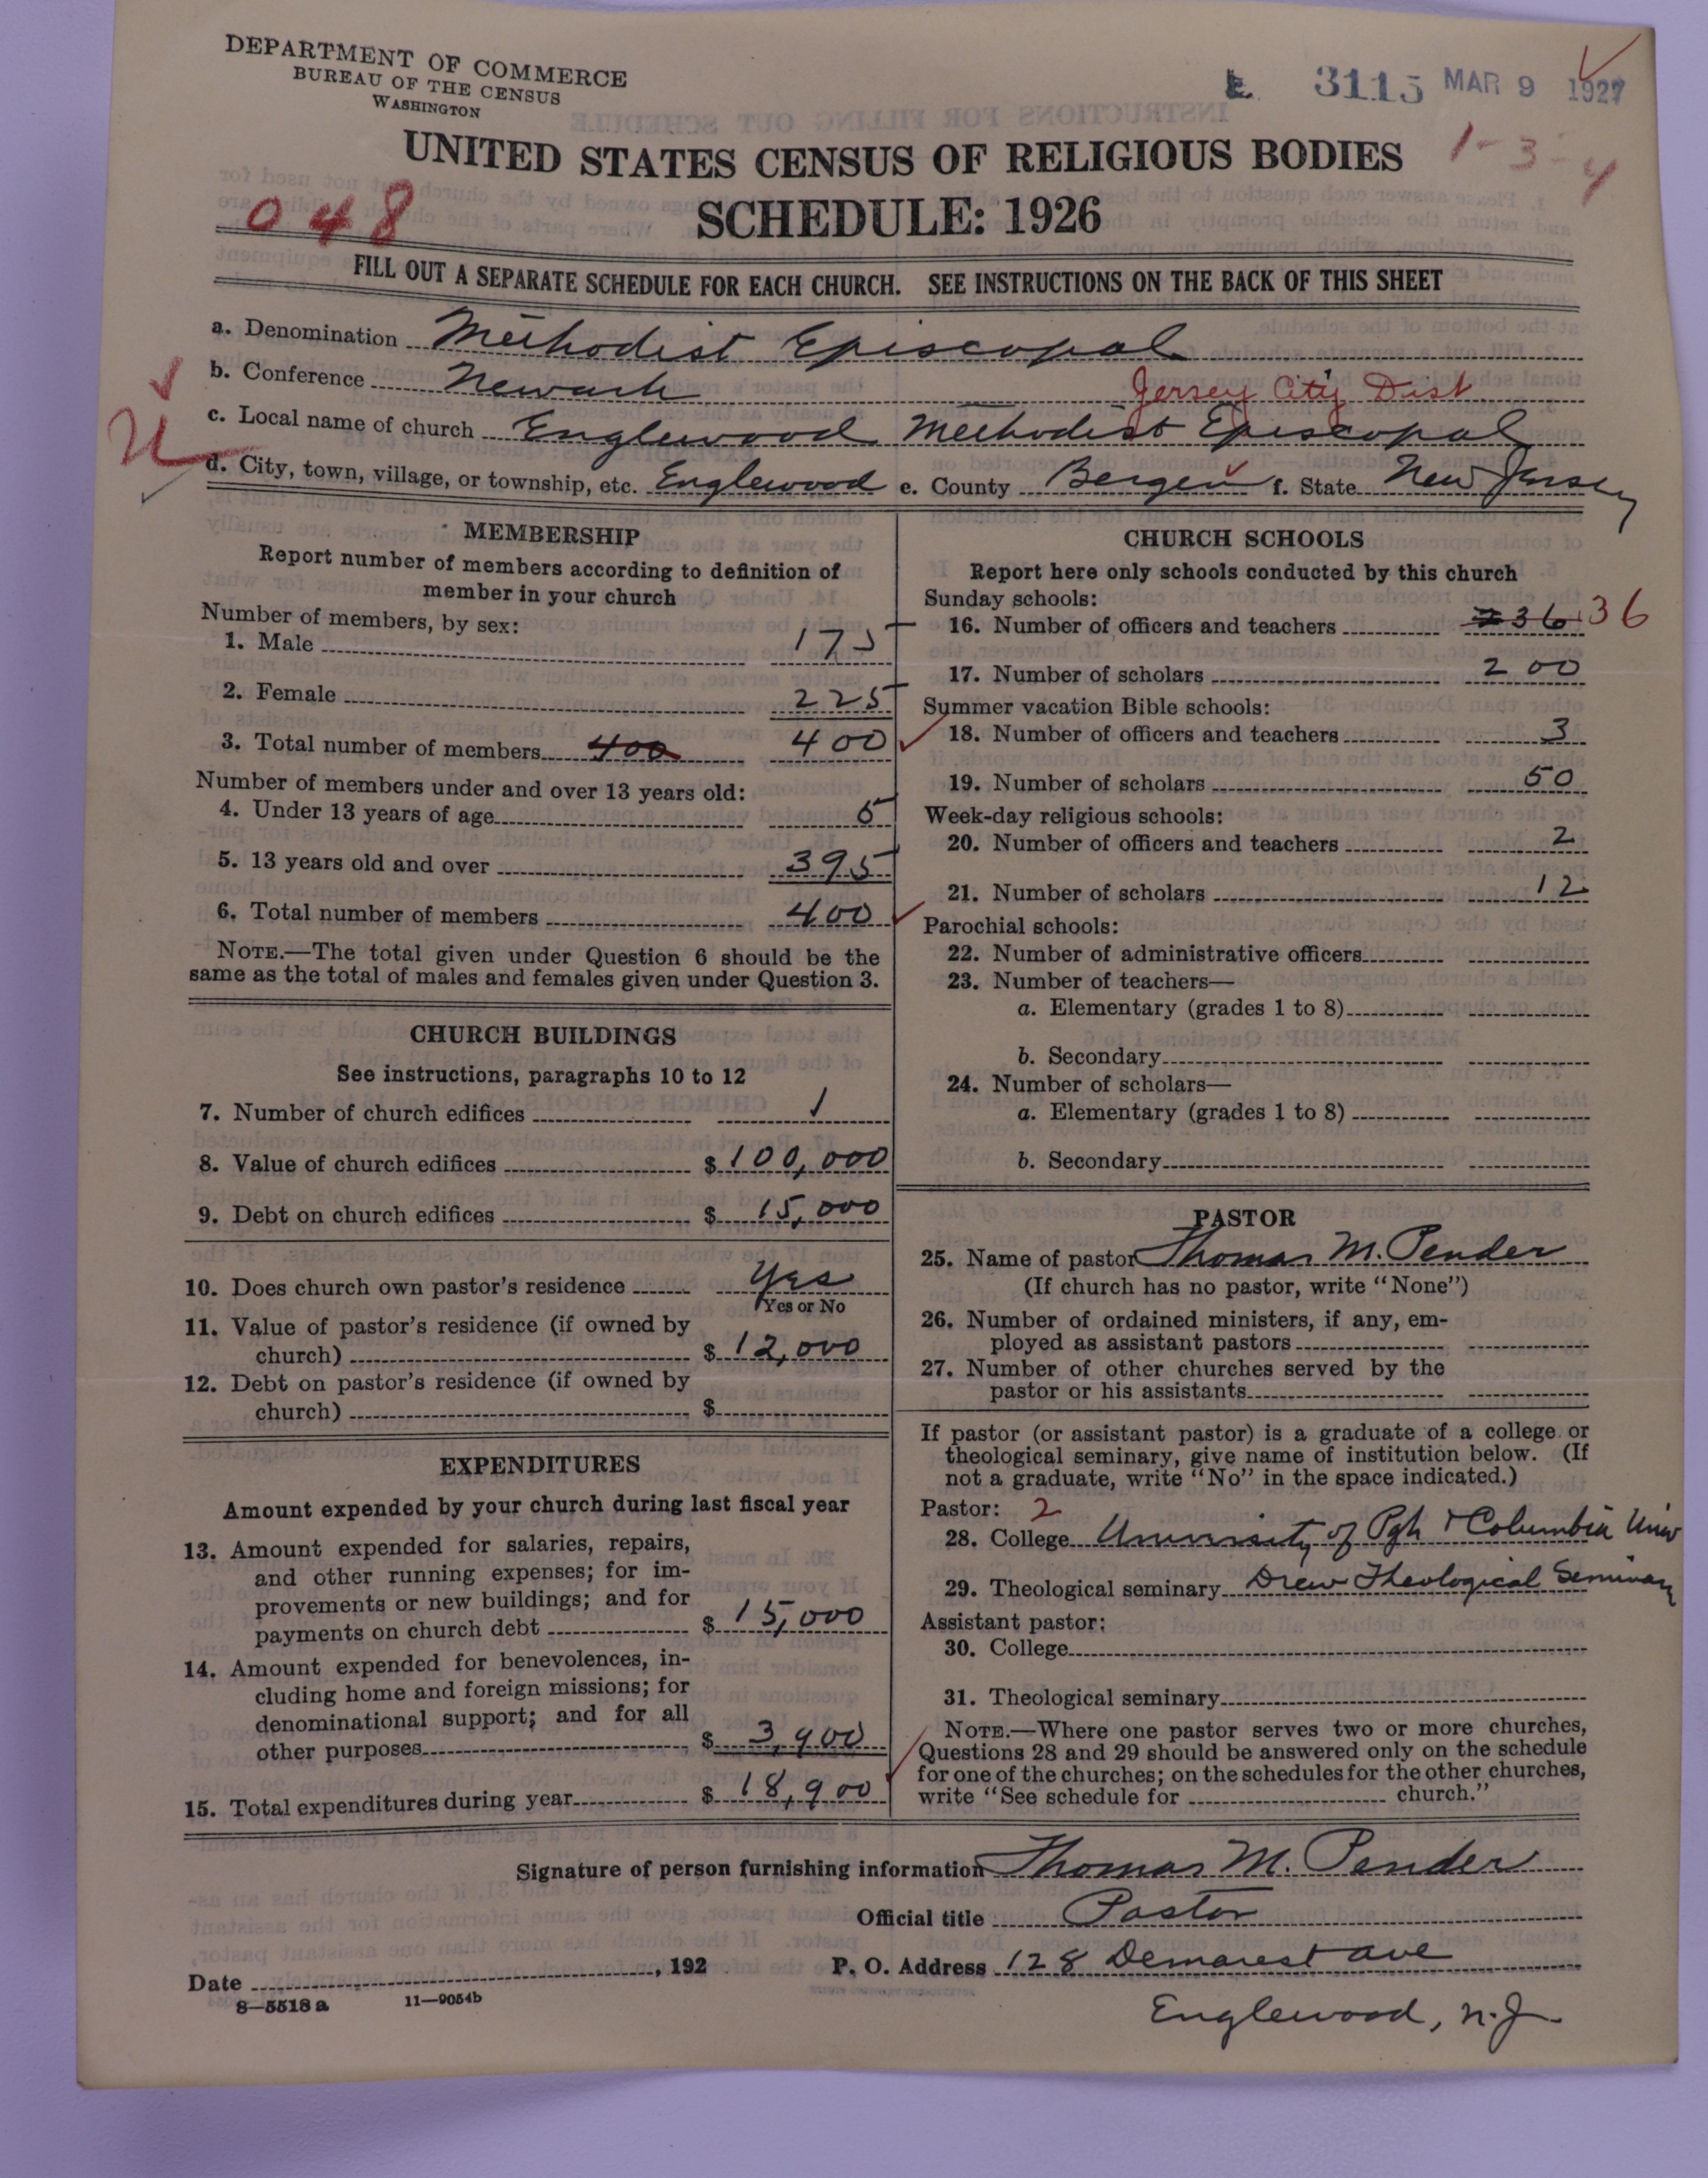 DEPARTMENT OF COMMERCE
BUREAU OF THE CENSUS
WASHINGTON
3115 MAR 9 1927
UNITED STATES CENSUS OF RELIGIOUS BODIES
1-3-4
048
SCHEDULE: 1926
FILL OUT A SEPARATE SCHEDULE FOR EACH CHURCH. SEE INSTRUCTIONS ON THE BACK OF THIS SHEET
a. Denomination Methodist Episcopal
b. Conference Newark Jersey City Dist
c. Local name of church Englewood Methodist Episcopal
d. City, town, village, or township, etc. Englewood e. County Bergen f. State New Jersey
MEMBERSHIP
Report number of members according to definition of
member in your church
Number of members, by sex:
1. Male 175
2. Female 225
3. Total number of members 400 400
Number of members under and over 13 years old:
4. Under 13 years of age 5
5. 13 years old and over 395
6. Total number of members 400
NOTE.—The total given under Question 6 should be the
same as the total of males and females given under Question 3.
CHURCH BUILDINGS
See instructions, paragraphs 10 to 12
7. Number of church edifices 1
8. Value of church edifices $ 100,000
9. Debt on church edifices $ 15,000
10. Does church own pastor's residence Yes
Yes or No
11. Value of pastor's residence (if owned by
church) $ 12,000
12. Debt on pastor's residence (if owned by
church) $
EXPENDITURES
Amount expended by your church during last fiscal year
13. Amount expended for salaries, repairs,
and other running expenses; for im-
provements or new buildings; and for
payments on church debt $ 15,000
14. Amount expended for benevolences, in-
cluding home and foreign missions; for
denominational support; and for all
other purposes $ 3,900
15. Total expenditures during year $ 18,900
CHURCH SCHOOLS
Report here only schools conducted by this church
Sunday schools:
16. Number of officers and teachers 36 36
17. Number of scholars 200
Summer vacation Bible schools:
18. Number of officers and teachers 3
19. Number of scholars 50
Week-day religious schools:
20. Number of officers and teachers 2
21. Number of scholars 12
Parochial schools:
22. Number of administrative officers
23. Number of teachers—
a. Elementary (grades 1 to 8)
b. Secondary
24. Number of scholars—
a. Elementary (grades 1 to 8)
b. Secondary
PASTOR
25. Name of pastor Thomas M. Pender
(If church has no pastor, write "None")
26. Number of ordained ministers, if any, em-
ployed as assistant pastors
27. Number of other churches served by the
pastor or his assistants
If pastor (or assistant pastor) is a graduate of a college or
theological seminary, give name of institution below. (If
not a graduate, write "No" in the space indicated.)
Pastor: 2
28. College University of Pgh & Columbia Univ
29. Theological seminary Drew Theological Seminary
Assistant pastor:
30. College
31. Theological seminary
NOTE.—Where one pastor serves two or more churches,
Questions 28 and 29 should be answered only on the schedule
for one of the churches; on the schedules for the other churches,
write "See schedule for church."
Signature of person furnishing information Thomas M. Pender
Official title Pastor
Date , 192 P. O. Address 128 Demarest ave
8—5518 a 11—9054b
Englewood, N.J.